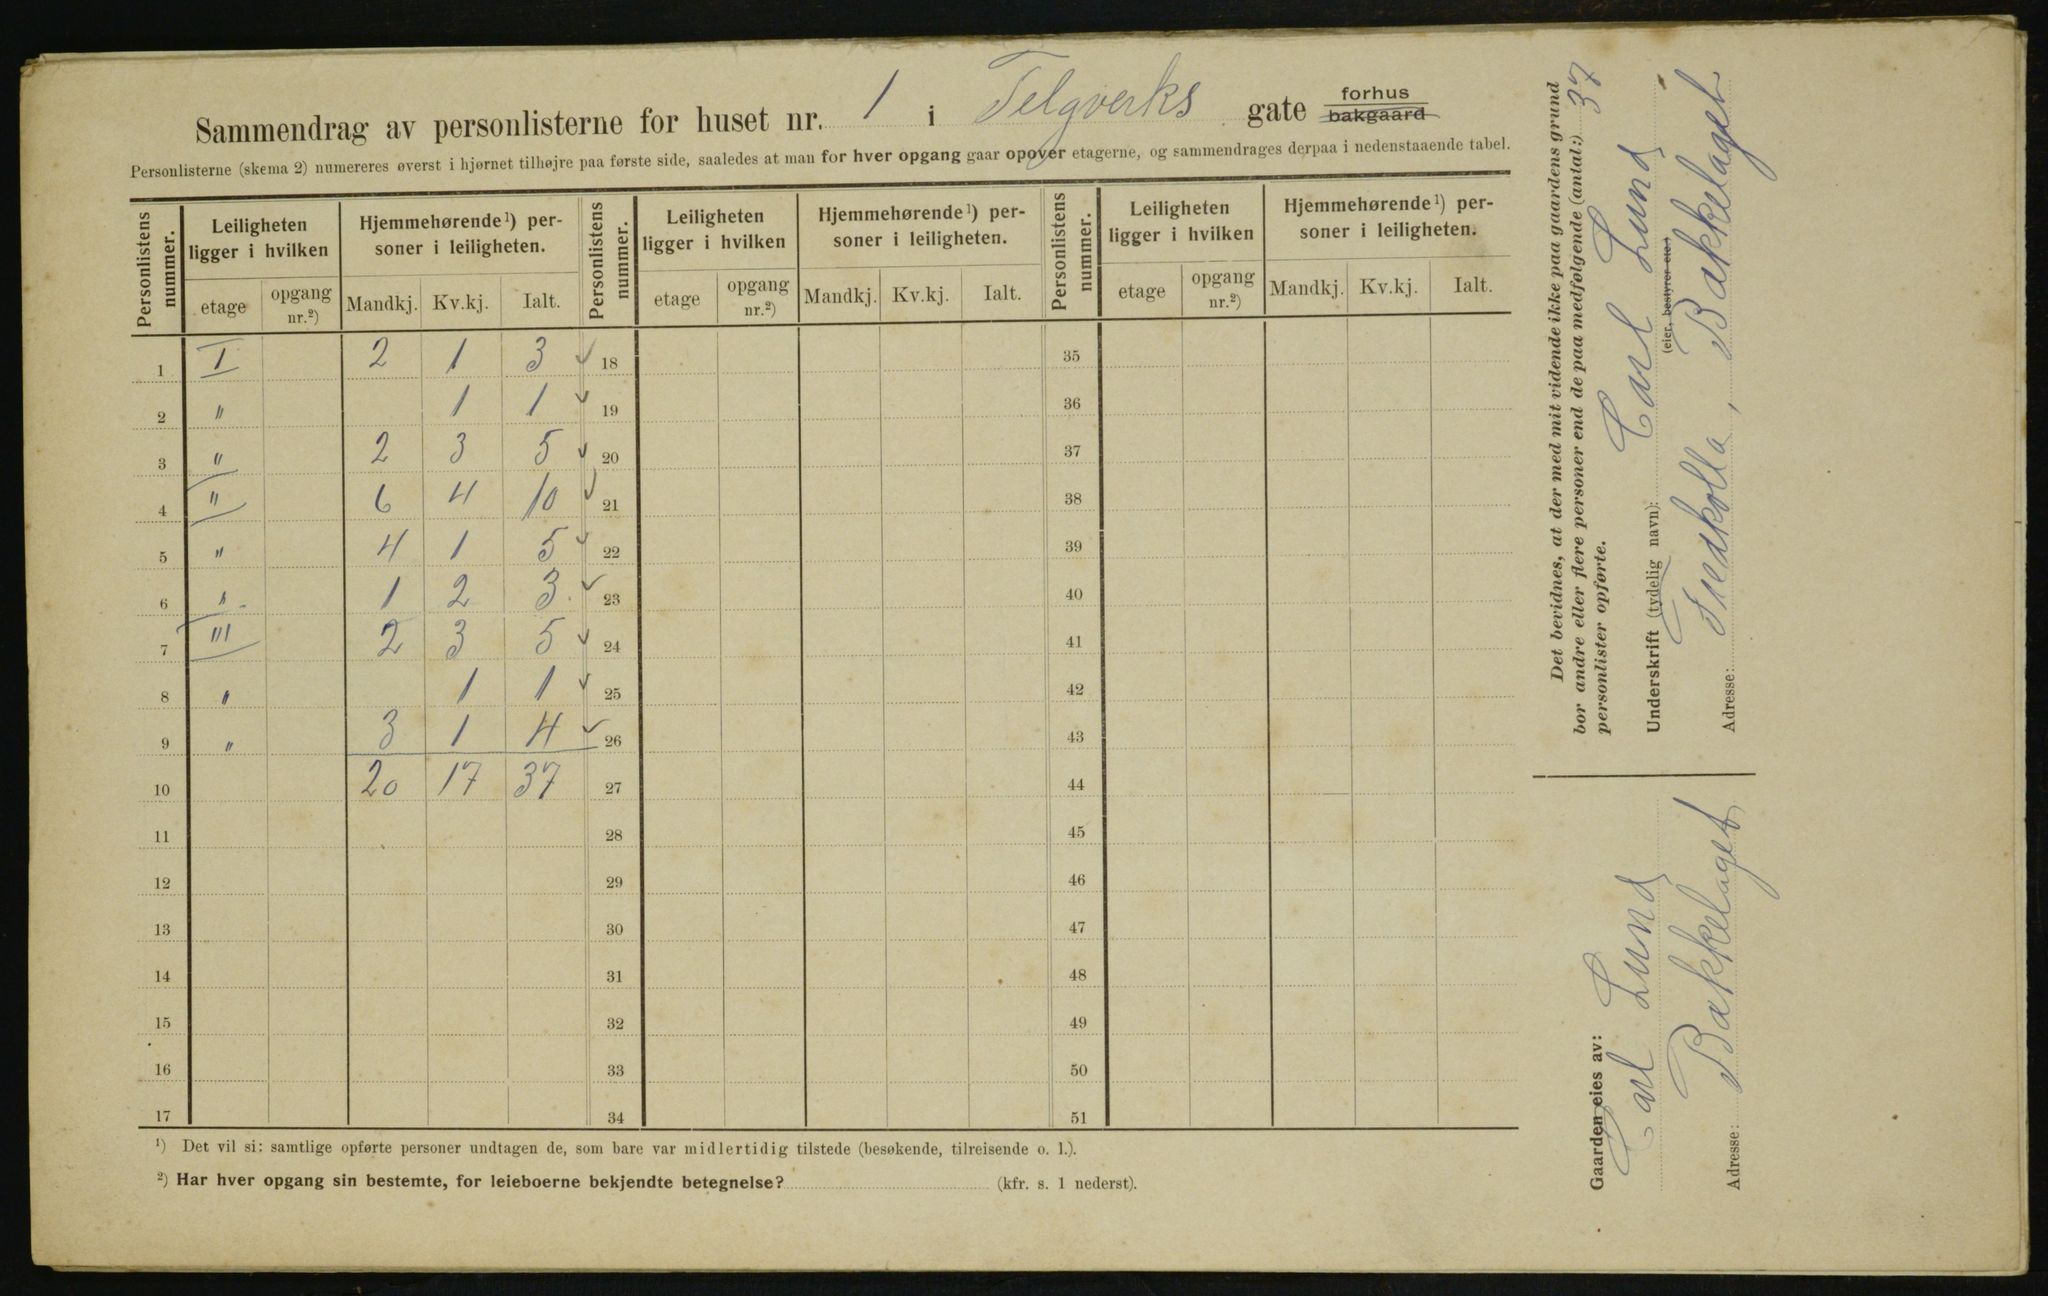 Sammendrag av personlisterne for huset nr. 1 i Telgverks gate forhus bakgaard
Personlisterne (skema 2) numereres øverst i hjørnet tilhøjre paa første side, saaledes at man for hver opgang gaar opover etagerne, og sammendrages derpaa i nedenstaaende tabel.
Personlistens nummer. Leiligheten ligger i hvilken Hjemmehørende¹) personer i leiligheten. Personlistens nummer. Leiligheten ligger i hvilken Hjemmehørende¹) personer i leiligheten. Personlistens nummer. Leiligheten ligger i hvilken Hjemmehørende¹) personer i leiligheten.
etage opgang nr.²) Mandkj. Kv.kj. Ialt. etage opgang nr.²) Mandkj. Kv.kj. Ialt. etage opgang nr.²) Mandkj. Kv.kj. Ialt.
1 I 2 1 3 ✓ 18 35
2 " 1 1 ✓ 19 36
3 " 2 3 5 ✓ 20 37
4 " 6 4 10 ✓ 21 38
5 " 4 1 5 ✓ 22 39
6 " 1 2 3 ✓ 23 40
7 III 2 3 5 ✓ 24 41
8 " 1 1 ✓ 25 42
9 " 3 1 4 ✓ 26 43
10 20 17 37 27 44
11 28 45
12 29 46
13 30 47
14 31 48
15 32 49
16 33 50
17 34 51
¹) Det vil si: samtlige opførte personer undtagen de, som bare var midlertidig tilstede (besøkende, tilreisende o. l.).
²) Har hver opgang sin bestemte, for leieboerne bekjendte betegnelse? (kfr. s. 1 nederst).
Det bevidnes, at der med mit vidende ikke paa gaardens grund
bor andre eller flere personer end de paa medfølgende (antal:) 37
personlister opførte.
Underskrift (tydelig navn): Carl Lund
(eier, bestyrer etc.)
Adresse: , Bækkelaget
Gaarden eies av:
Carl Lund
Adresse: Bækkelaget